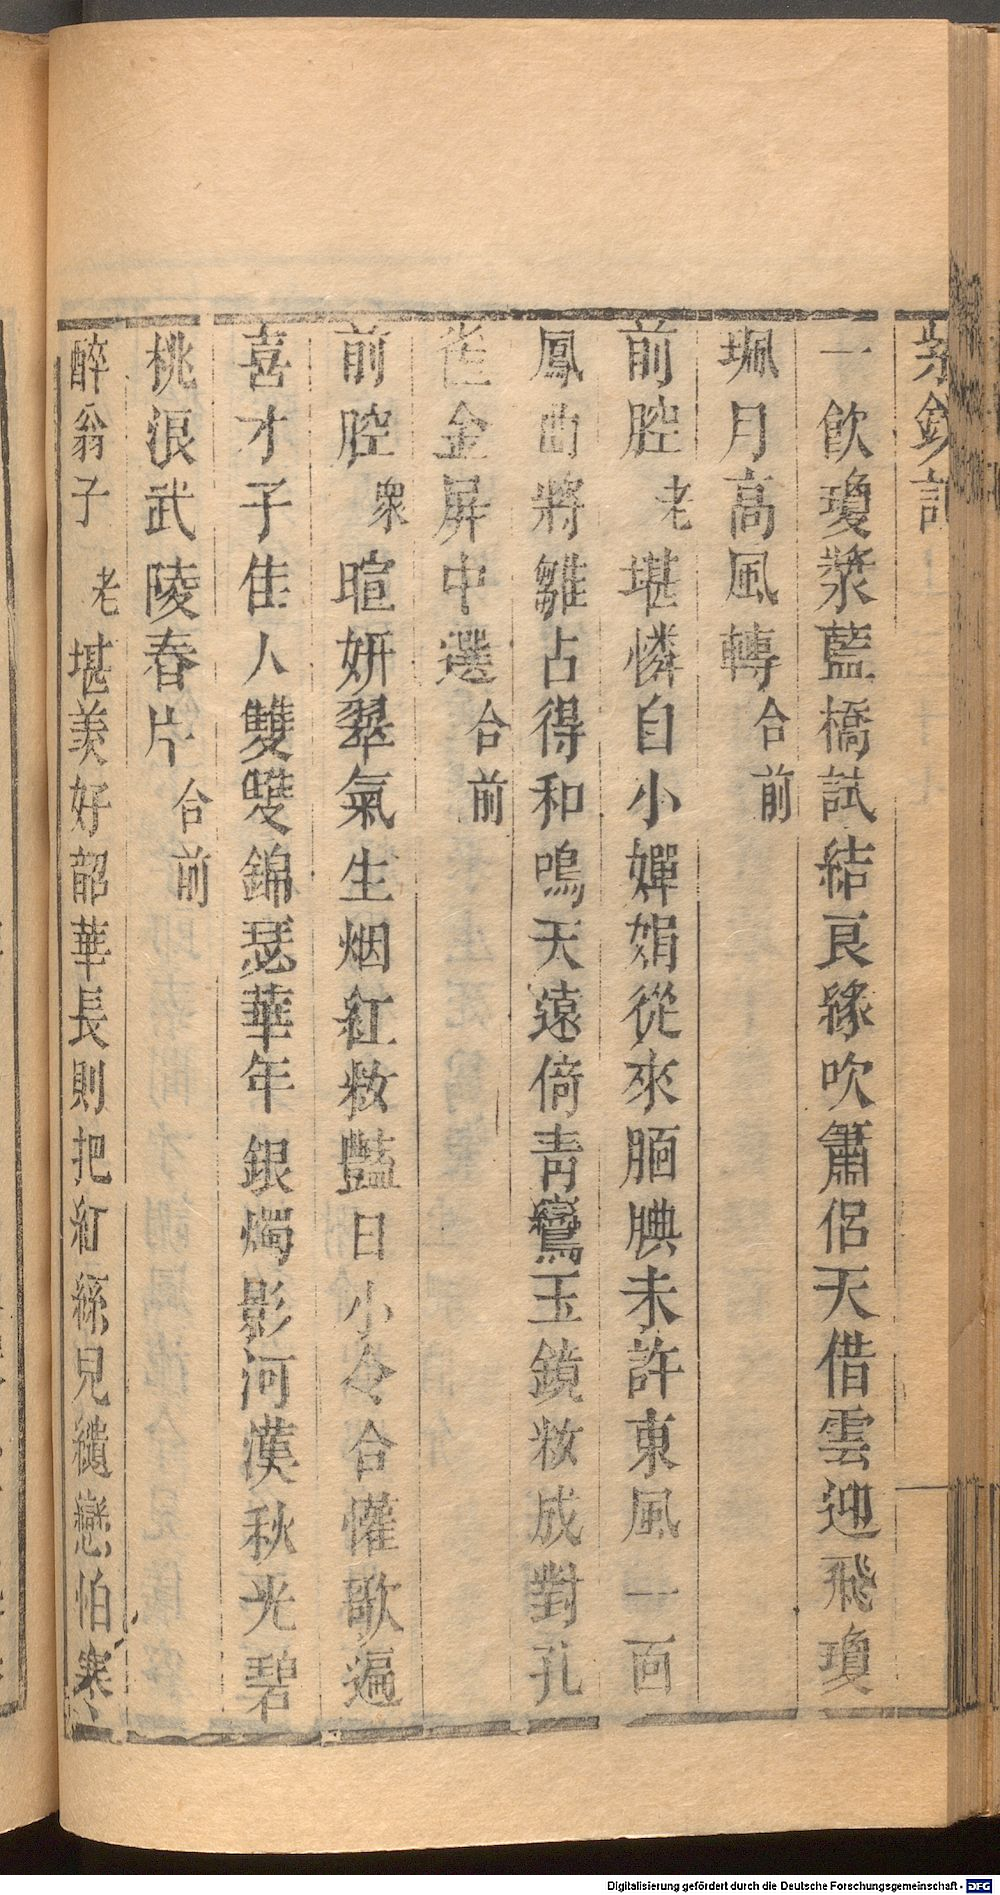 紫釵記
一飲瓊漿藍橋試結良緣吹簫侶天借雲迎飛瓊
珮月高風轉合前
前腔老堪憐自小嬋娟從來腼腆未許東風一面
鳳曲將雛占得和鳴天遠倚青鸞玉鏡妝成對孔
雀金屏中選合前
前腔衆暄妍翠氣生烟紅妝豔日小令合懽歌遍
喜才子佳人雙雙錦瑟華年銀燭影河漢秋光碧
桃浪武陵春片合前
醉翁子老堪羨好韶華長則把紅絲兒繾戀怕寒
Digitalisierung gefördert durch die Deutsche Forschungsgemeinschaft - DFG